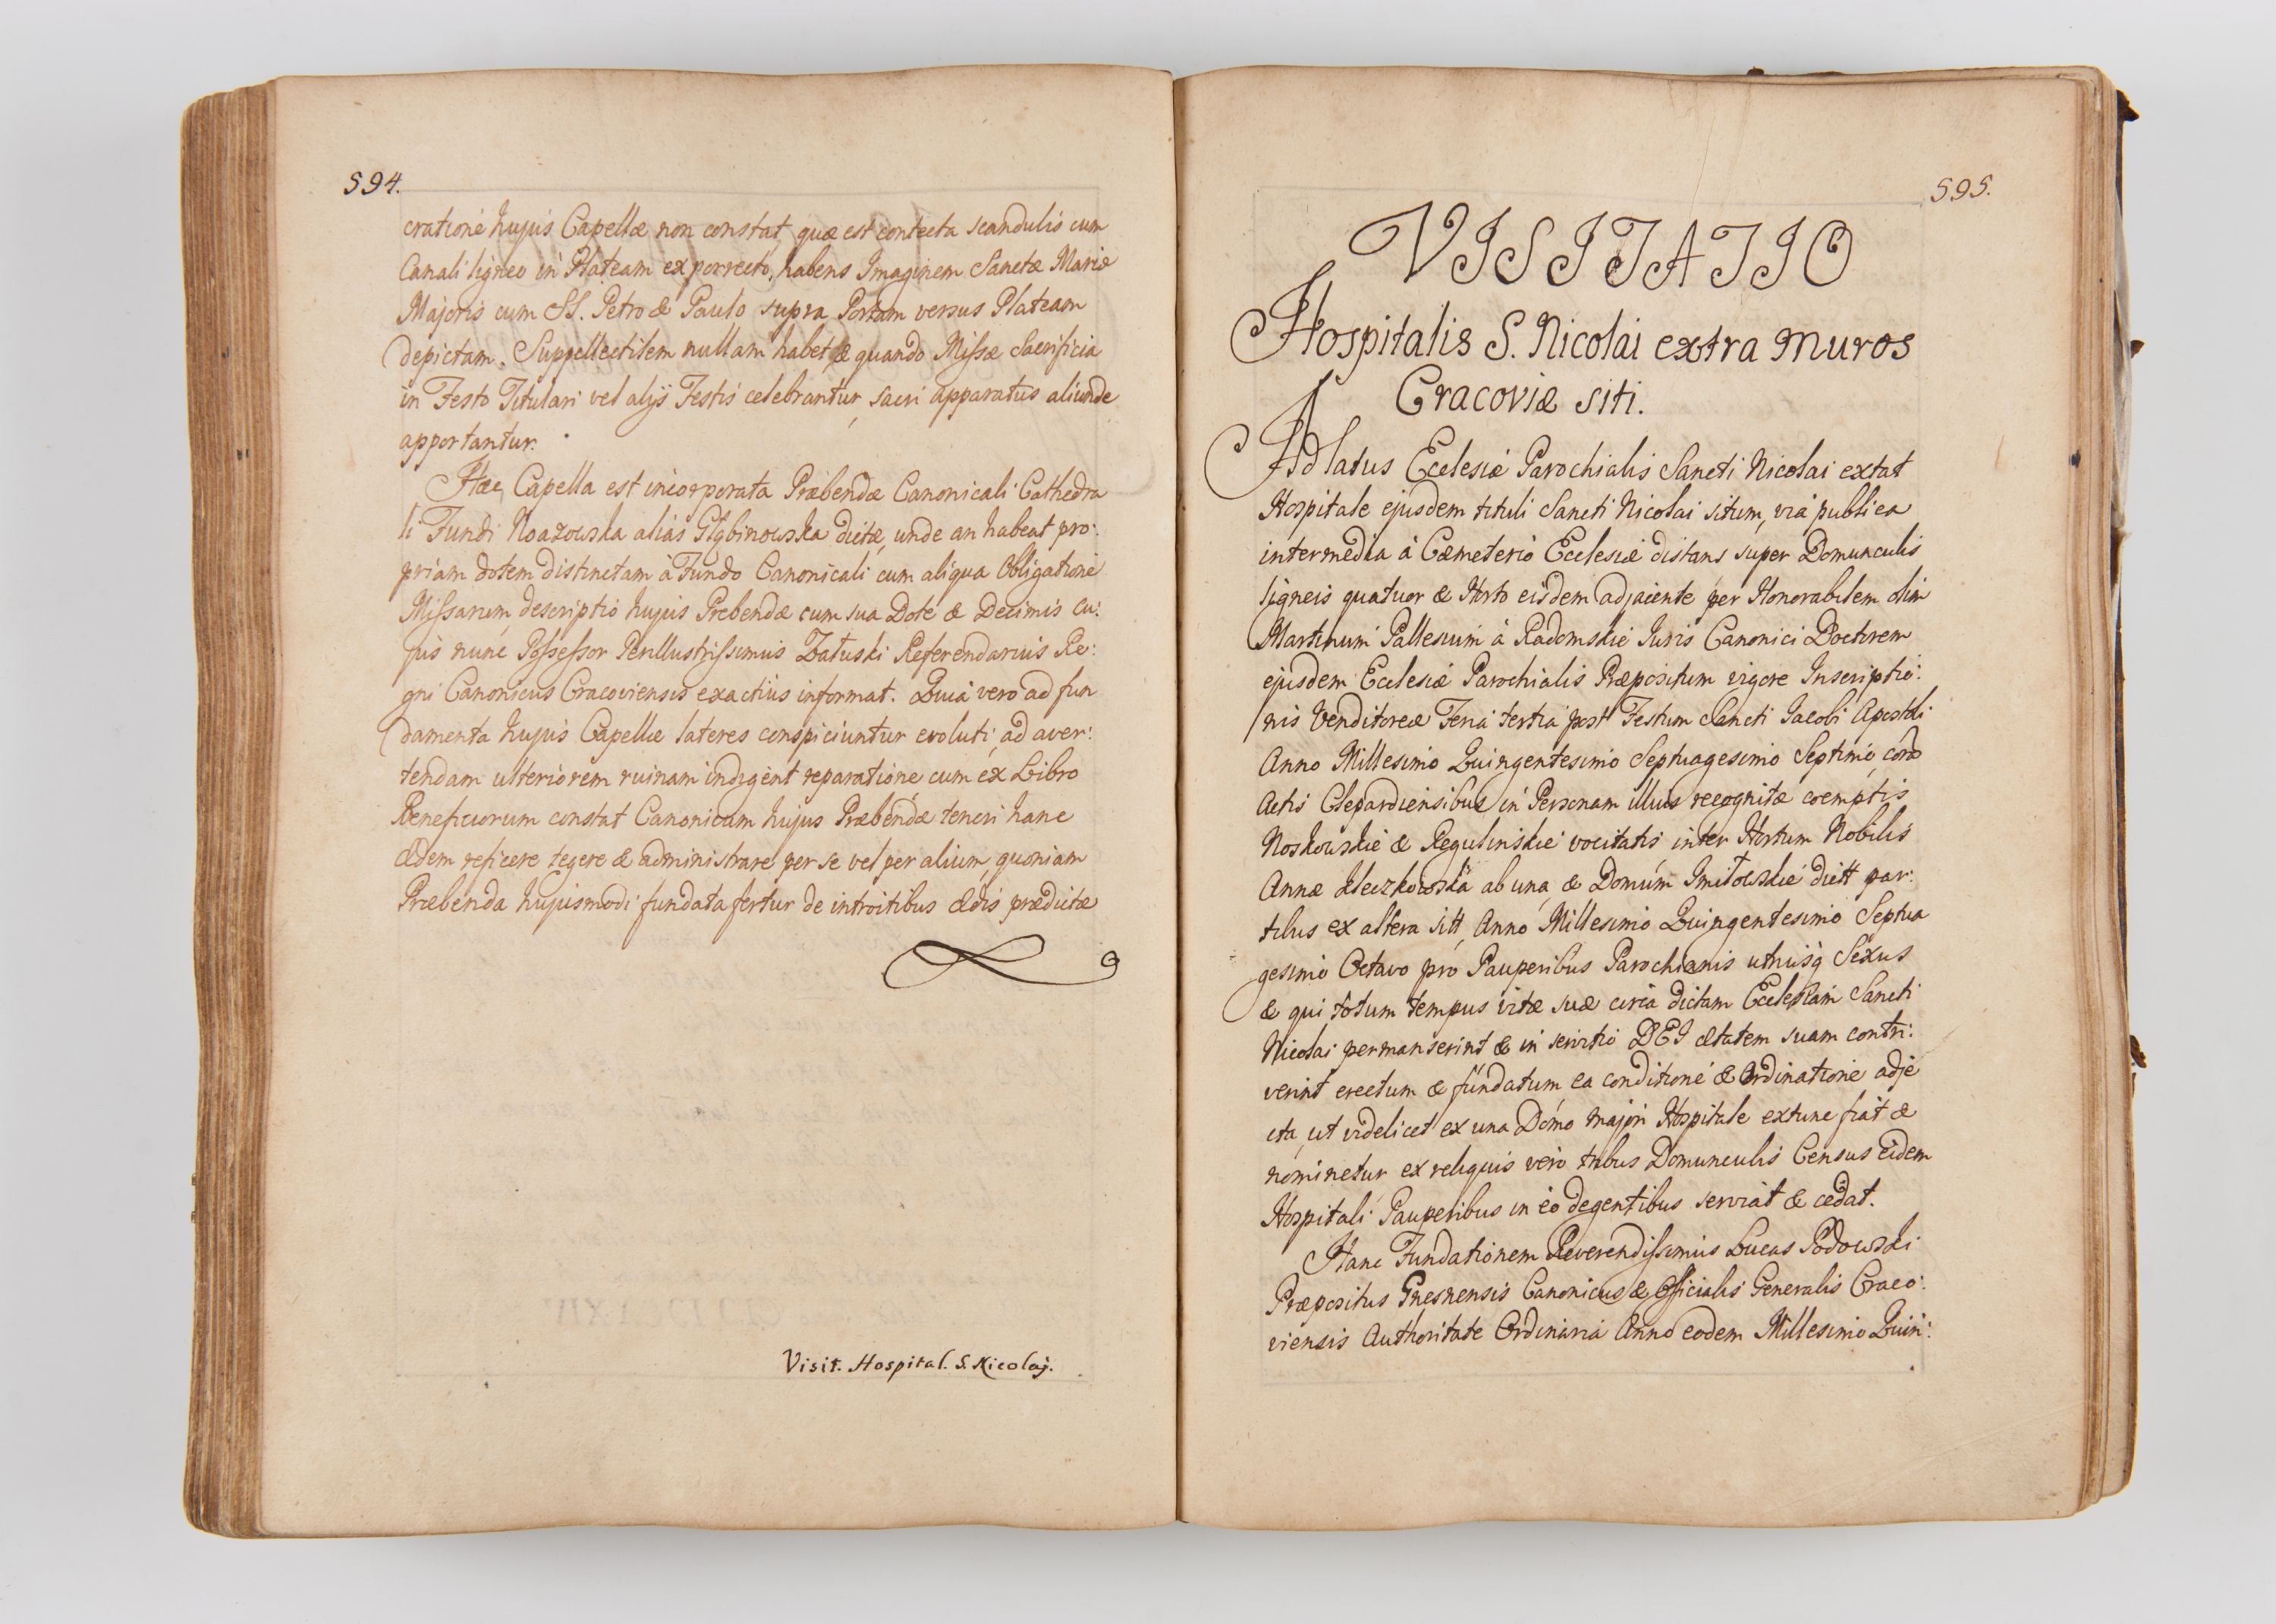 594.
cratione hujus Capellæ non constat, quæ est contecta scandulis cum
Canali ligneo in Plateam exporrecto, habens Imaginem Sanctæ Mariæ
Majoris cum SS. Petro & Paulo supra Portam versus Plateam
depictam. Suppellectilem nullam habet & quando Missæ Sacrificia
in Festo Titulari vel alijs Festis celebrantur, sacri apparatus aliunde
apportantur.
Hæc Capella est incorporata Præbendæ Canonicali Cathedra
li Fundi alias dictæ, unde an habeat pro:
priam dotem distinctam à Fundo Canonicali cum aliqua Obligatione
Missarum, descriptio hujus Prebendæ cum sua Dote & Decimis cu:
jus nunc Possessor Perillustrissimus Załuski Referendarius Re:
gni Canonicus Cracoviensis exactius informat. Quia vero ad fun
damenta hujus Capellæ lateres conspiciuntur evoluti, ad aver:
tendam ulteriorem ruinam indigent reparatione, cum ex Libro
Beneficiorum constat Canonicum hujus Præbendæ teneri hanc
ædem reficere tegere & administrare per se vel per alium, quoniam
Præbenda hujusmodi fundata fertur de introitibus ædis prædictæ
Visit. Hospital. S. Nicolaj.
595.
VISITATIO
Hospitalis S. Nicolai extra muros
Cracoviæ siti.
Ad latus Ecclesiæ Parochialis Sancti Nicolai extat
Hospitale ejusdem tituli Sancti Nicolai situm, via publica
intermedia à Cæmeterio Ecclesiæ distans super Domunculis
ligneis quatuor & Horto eisdem adjacente per Honorabilem olim
Martinum à Radomskie Juris Canonici Doctorem
ejusdem Ecclesiæ Parochialis Præpositum vigore Inscriptio:
nis Venditoreæ Feria tertia post Festum Sancti Jacobi Apostoli
Anno Millesimo Quingentesimo Septuagesimo Septimo, coram
Actis Clepardiensibus in Personam illius recognitæ coemptis
Noskowskie & Regulinskie vocitatis inter Hortum Nobilis
Annæ ab una, & Domum dictt par:
tibus ex altera sitt, Anno Millesimo Quingentesimo Septua
gesimo Octavo pro Pauperibus Parochianis utriusq Sexus
& qui totum tempus vitæ suæ circa dictam Ecclesiam Sancti
Nicolai permanserint & in servitio DEI ætatem suam contri:
verint erectum & fundatum ea conditione & Ordinatione adje
cta, ut videlicet ex una Domo majori Hospitale extunc fiat &
nominetur ex reliquis vero tribus Domunculis Census eidem
Hospitali Pauperibus in eo degentibus serviat & cedat.
Hanc Fundationem Reverendissimus Lucas Podowski
Præpositus Gnesnensis Canonicus & Officialis Generalis Craco:
viensis Authoritate Ordinaria Anno eodem Millesimo Quin: